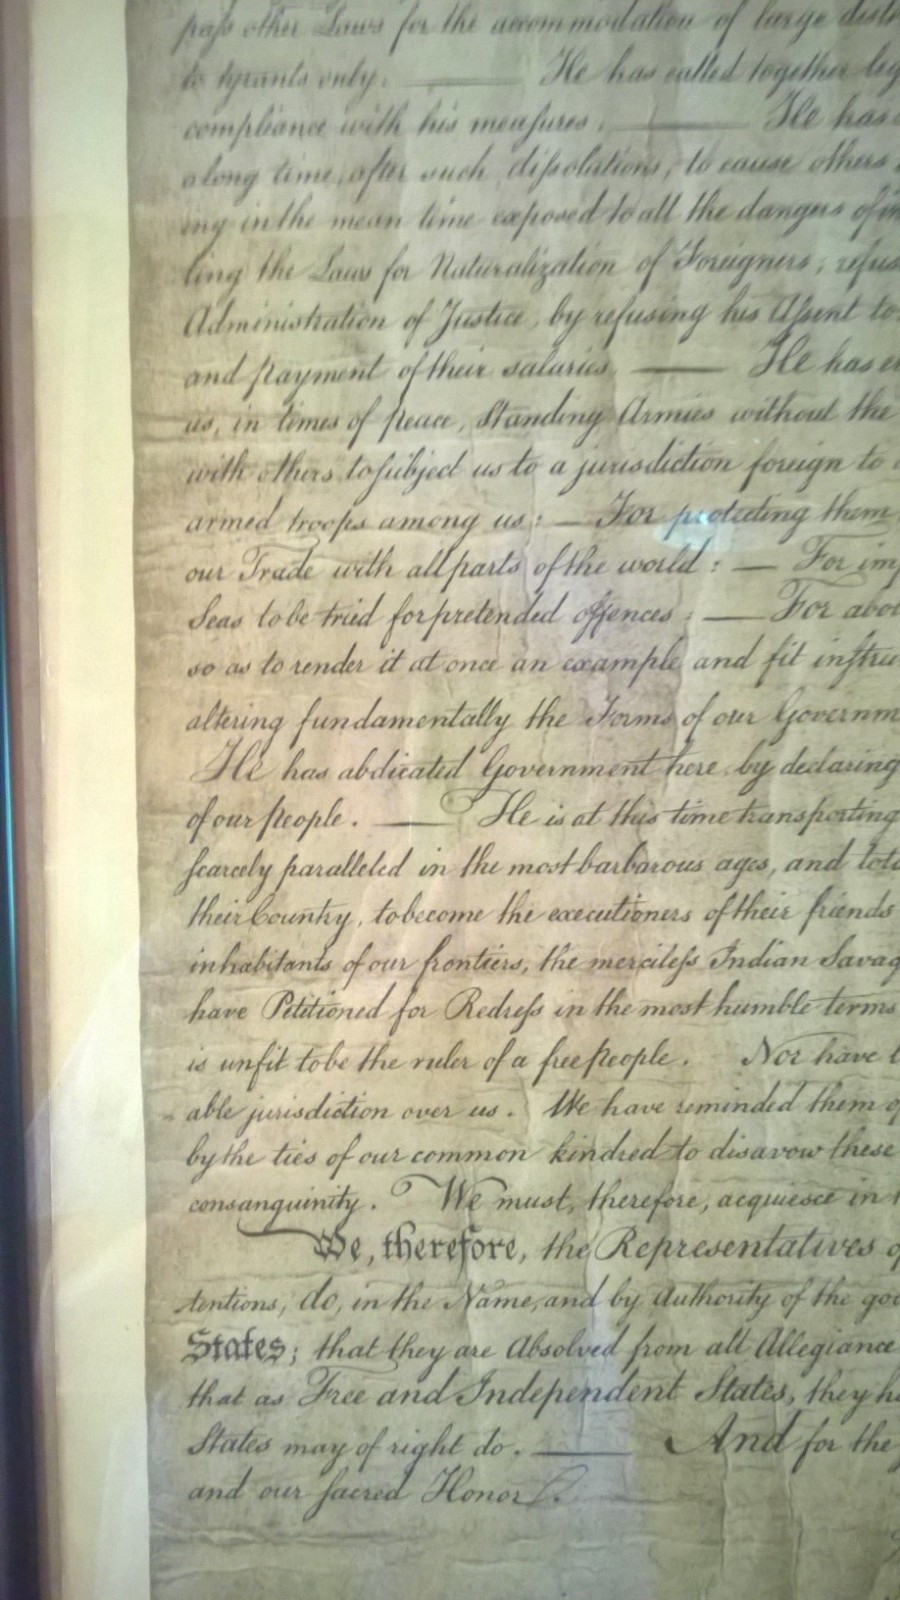 pass other Laws for the accommodation of large dist
to tyrants only. —— He has called together leg
compliance with his measures. —— He has
along time, after such dissolutions, to cause others
ing in the mean time exposed to all the dangers of in
ting the Laws for Naturalization of Foreigners; refus
Administration of Justice, by refusing his Assent to
and payment of their salaries. —— He has er
us, in times of peace, Standing Armies without the
with others to subject us to a jurisdiction foreign to
armed troops among us: — For protecting them
our Trade with all parts of the world: — For imp
Seas to be tried for pretended offences: — For abol
so as to render it at once an example and fit instru
altering fundamentally the Forms of our Governm
He has abdicated Government here, by declaring
of our people. —— He is at this time transporting
scarcely paralleled in the most barbarous ages, and tota
their Country, to become the executioners of their friends
inhabitants of our frontiers, the merciless Indian Savag
have Petitioned for Redress in the most humble terms
is unfit to be the ruler of a free people. Nor have
able jurisdiction over us. We have reminded them of
by the ties of our common kindred to disavow these
consanguinity. We must, therefore, acquiesce in
We, therefore, the Representatives of
tentions, do, in the Name, and by Authority of the goo
States; that they are Absolved from all Allegiance
that as Free and Independent States, they ha
States may of right do. —— And for the
and our sacred Honor.